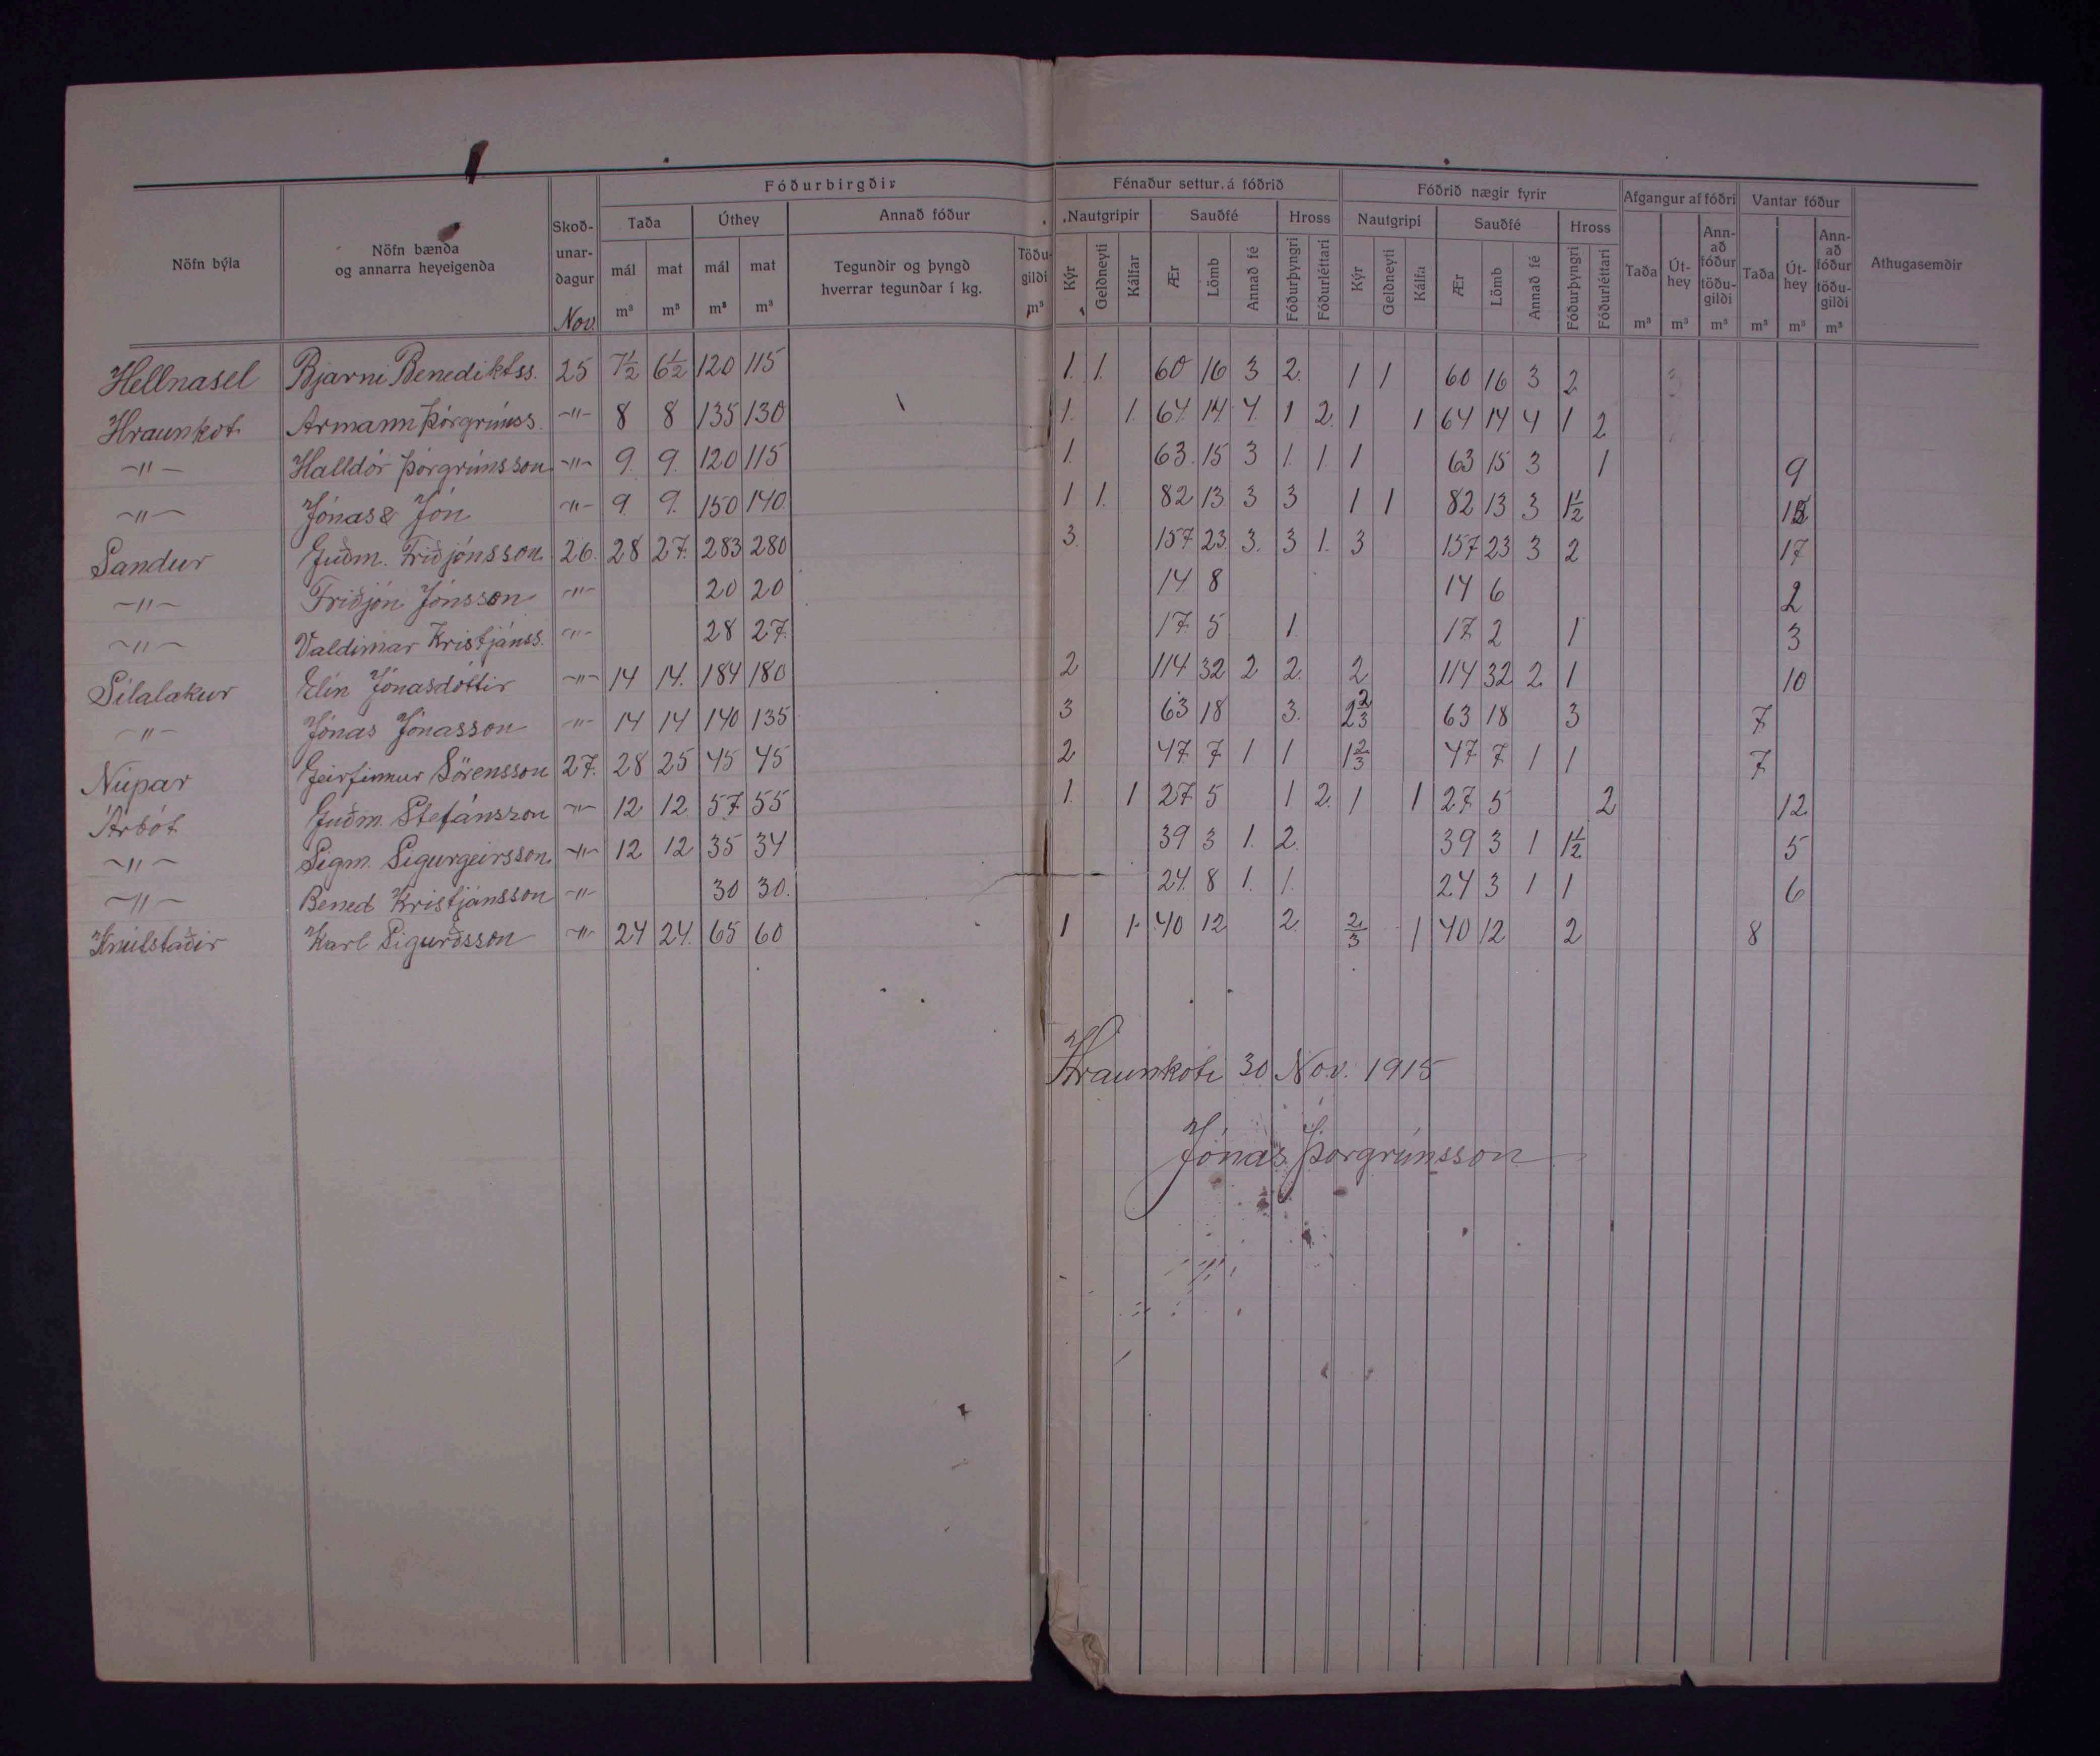 Fóðurbirgðir Fénaður settur á fóðrið Fóðrið nægir fyrir Afgangur af fóðri Vantar fóður
Nöfn býla Nöfn bænda og annarra heyeigenda Skoðunardagur Nov. Taða Úthey Annað fóður Nautgripir Sauðfé Hross Nautgripi Sauðfé Hross Taða Úthey Annað fóður töðugildi Taða Úthey Annað fóður töðugildi Athugasemdir
mál mat mál mat Tegundir og þyngd hverrar tegundar í kg. Töðugildi Kýr Geldneyti Kálfar Ær Lömb Annað fé Fóðurþyngri Fóðurléttari Kýr Geldneyti Kálfa Ær Lömb Annað fé Fóðurþyngri Fóðurléttari
m³ m³ m³ m³ m³ m³ m³ m³ m³ m³ m³
Hellnasel Bjarni Benediktss. 25 7½ 6½ 120 115 1. 1. 60 16 3 2. 1 1 60 16 3 2
Hraunkot Armann Þórgrímss. -"- 8 8 135 130 1. 1 64. 14. 4. 1 2. 1 1 64 14 4 1 2
-"- Halldór Þórgrímsson -"- 9. 9. 120 115 1. 63. 15 3 1. 1. 1 63 15 3 1 9
-"- Jónas & Jón -"- 9. 9. 150 140. 1 1. 82 13 3 3 1 1 82 13 3 1½
Sandur Guðm. Friðjónsson. 26. 28 27. 283 280 3. 157 23. 3. 3 1. 3 157 23 3 2 17
-"- Friðjón Jónsson -"- 20 20 14 8 14 6 2
-"- Valdimar Kristjánss. -"- 28 27. 17. 5 1. 17. 2 1 3
Sílalækur Elín Jónasdóttir -"- 14 14. 184 180 2 114 32 2 2. 2 114 32 2 1 10
-"- Jónas Jónasson -"- 14 14 140 135 3 63 18 3. 2⅔ 63 18 3 7
Núpar Geirfinnur Sörensson 27. 28 25 45 45 2 47. 7 1 1 1⅔ 47 7 1 1 7
Árbót Guðm. Stefánsson -"- 12 12 57 55 1. 1 27 5 1 2. 1 1 27. 5 2 12
-"- Sigm. Sigurgeirsson. -"- 12 12 35 34 39 3 1. 2. 39 3 1 1½ 5
-"- Bened Kristjánsson -"- 30 30. 24. 8 1. 1. 24 3 1 1 6
Knútstaðir Karl Sigurðsson -"- 24 24. 65 60 1 1. 40 12 2. ⅔ 1 40 12 2 8
Hraunkoti 30 Nov. 1915
Jónas Þorgrímsson